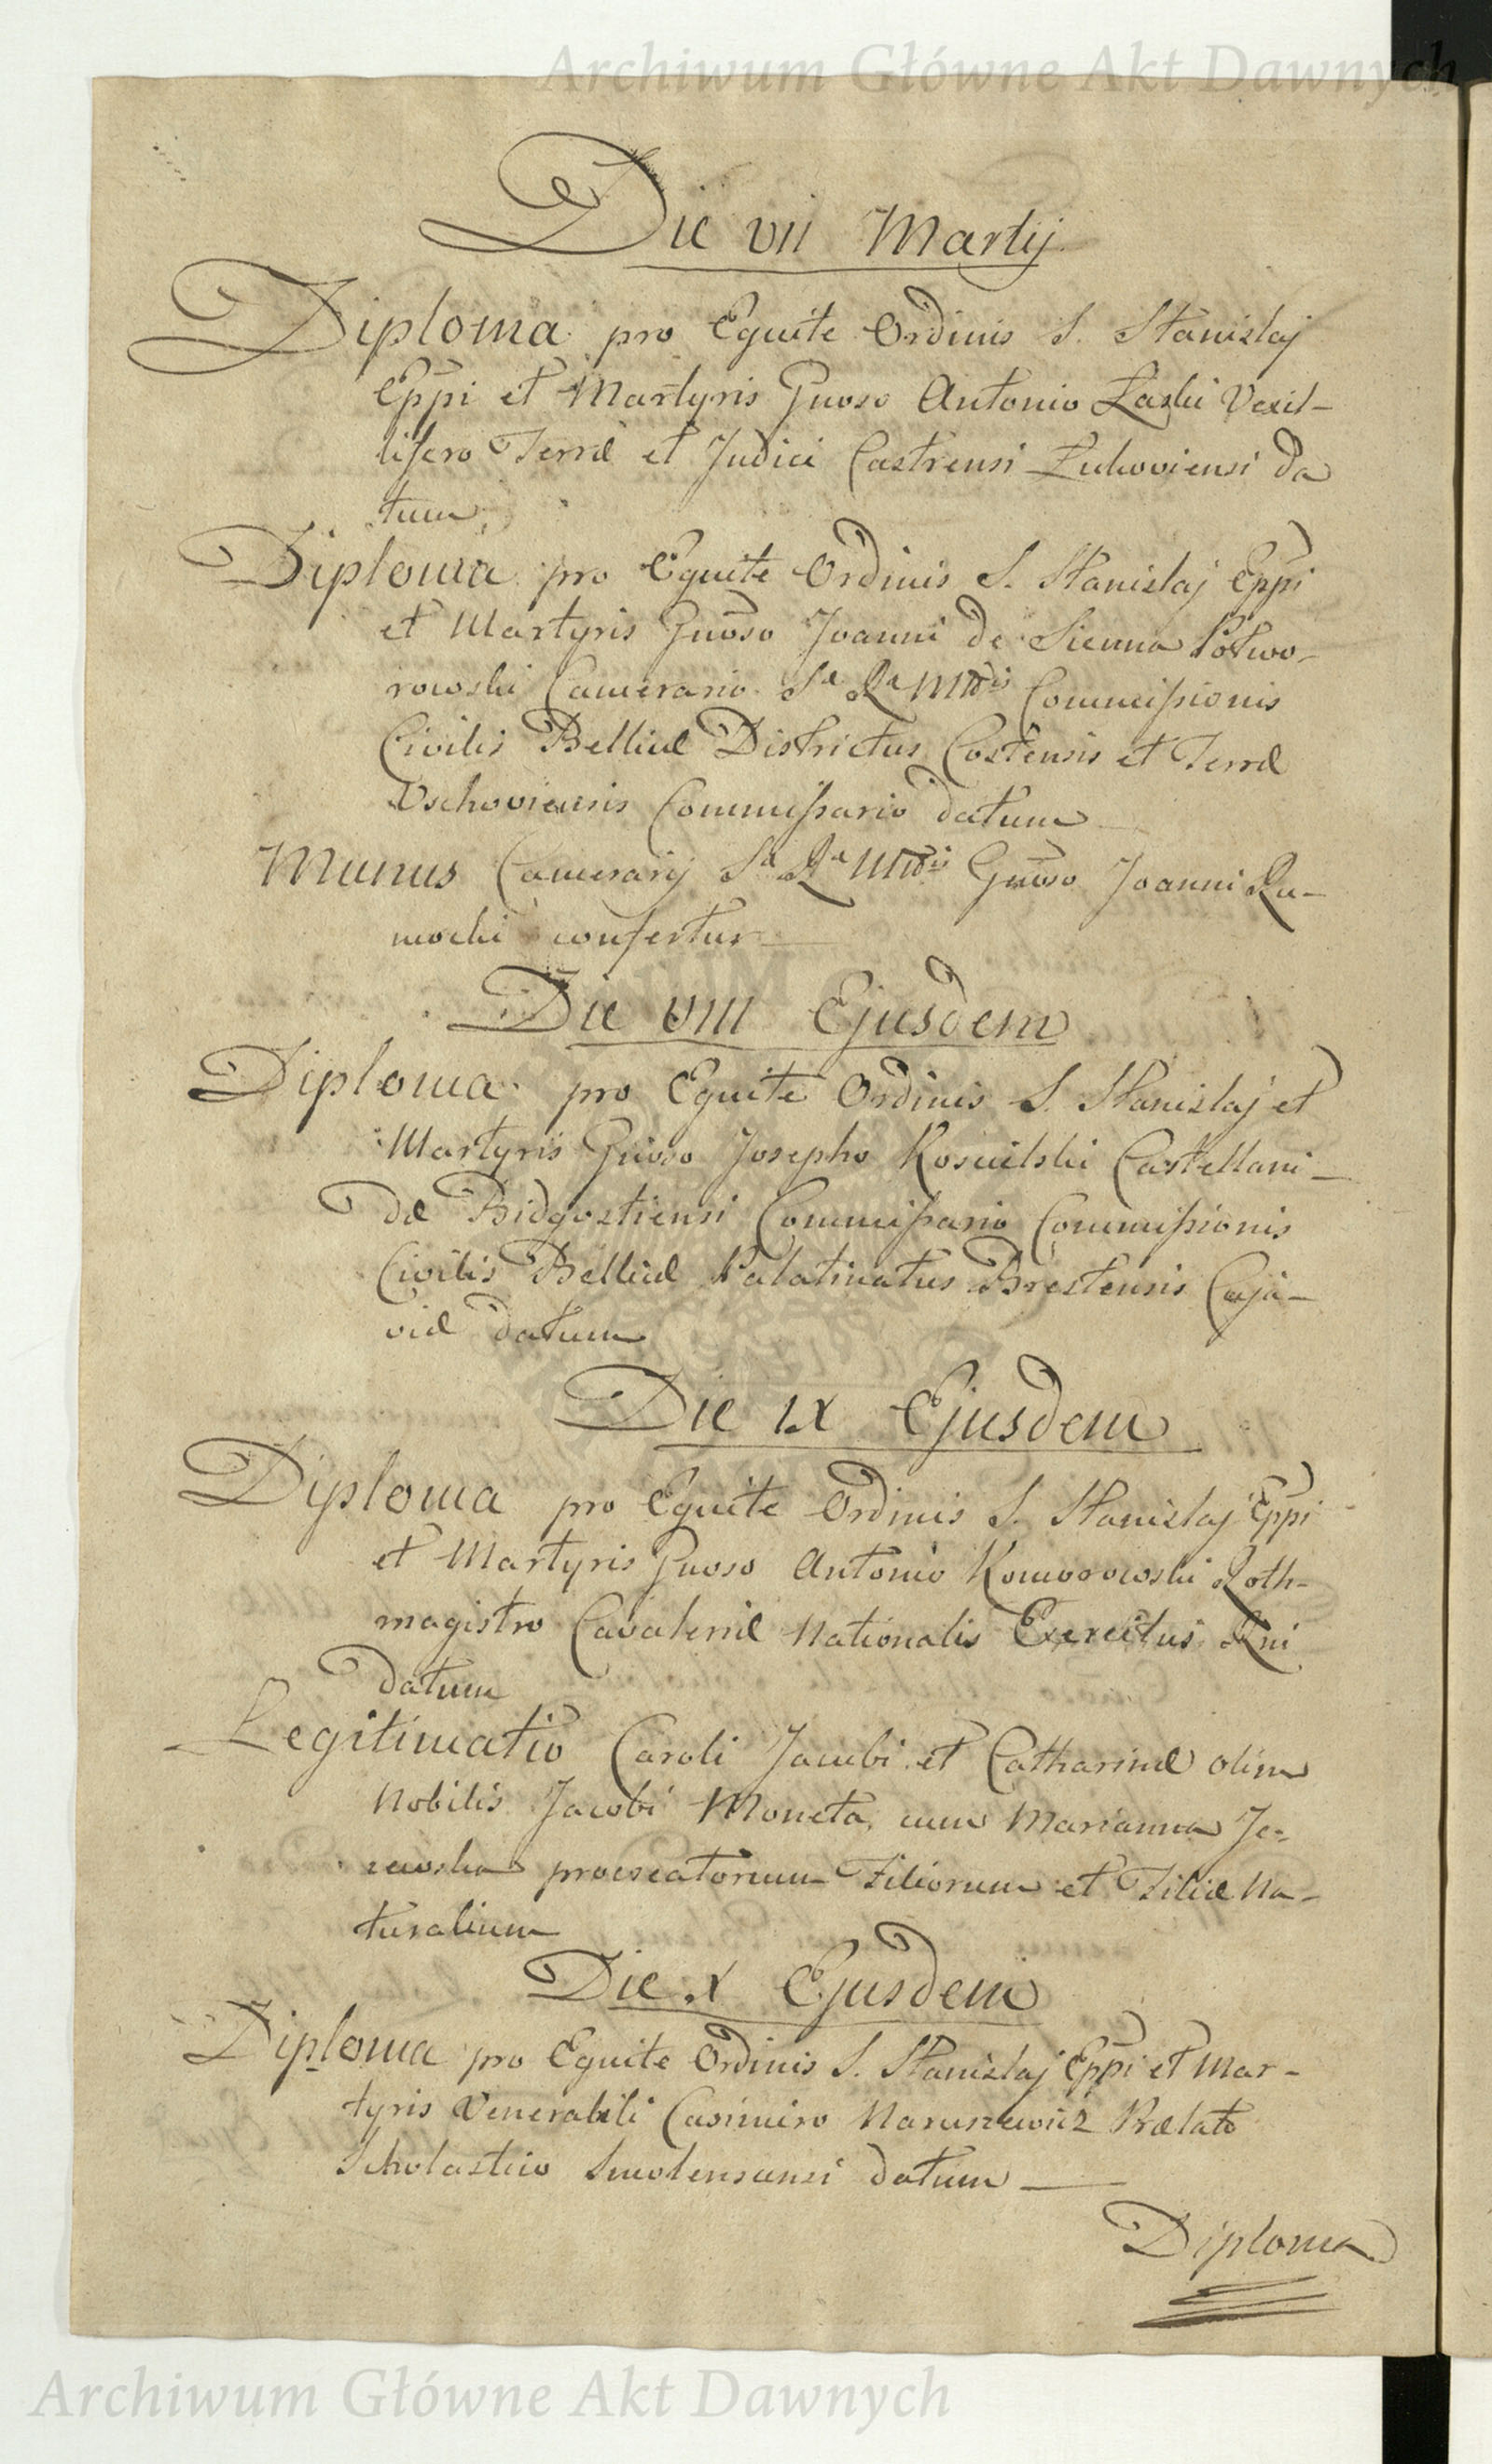 Archiwum Główne Akt Dawnych
Die VII Martij
Diploma pro Equite Ordinis S. Stanislaj
Eppi et Martyris Gnoso Antonio Łaski Vexil-
lifero Terræ et Judici Castrensi Łukoviensi da
tum
Diploma pro Equite Ordinis S. Stanislaj Eppi
et Martyris Gnoso Joanni de Sienna Potwo-
rowski Camerario Sæ Ræ Mttis Commissionis
Civilis Bellicæ Districtus Costensis et Terræ
Vschoviensis Commissario datum
Munus Camerarij Sæ Ræ Mttis Gnoso Joanni Ru-
mocki confertur
Die VIII Ejusdem
Diploma pro Equite Ordinis S. Stanislaj et
Martyris Gnoso Josepho Kościelski Castellani-
dæ Bidgostiensi Commissario Commissionis
Civilis Bellicæ Palatinatus Brestensis Cuja-
viæ datum
Die IX Ejusdem
Diploma pro Equite Ordinis S. Stanislaj Eppi
et Martyris Gnoso Antonio Komorowski Roth-
magistro Cavaleriæ Nationalis Exercitus Rni
datum
Legitimatio Caroli Jacobi et Catharinæ olim
Nobilis Jacobi Moneta, cum Marianna
procreatorum Filiorum et Filiæ Na-
turalium
Die X Ejusdem
Diploma pro Equite Ordinis S. Stanislaj Eppi et Mar-
tyris Venerabili Casimiro Naruszewicz Prælato
Scholastico Smolenscensi datum
Diploma
Archiwum Główne Akt Dawnych